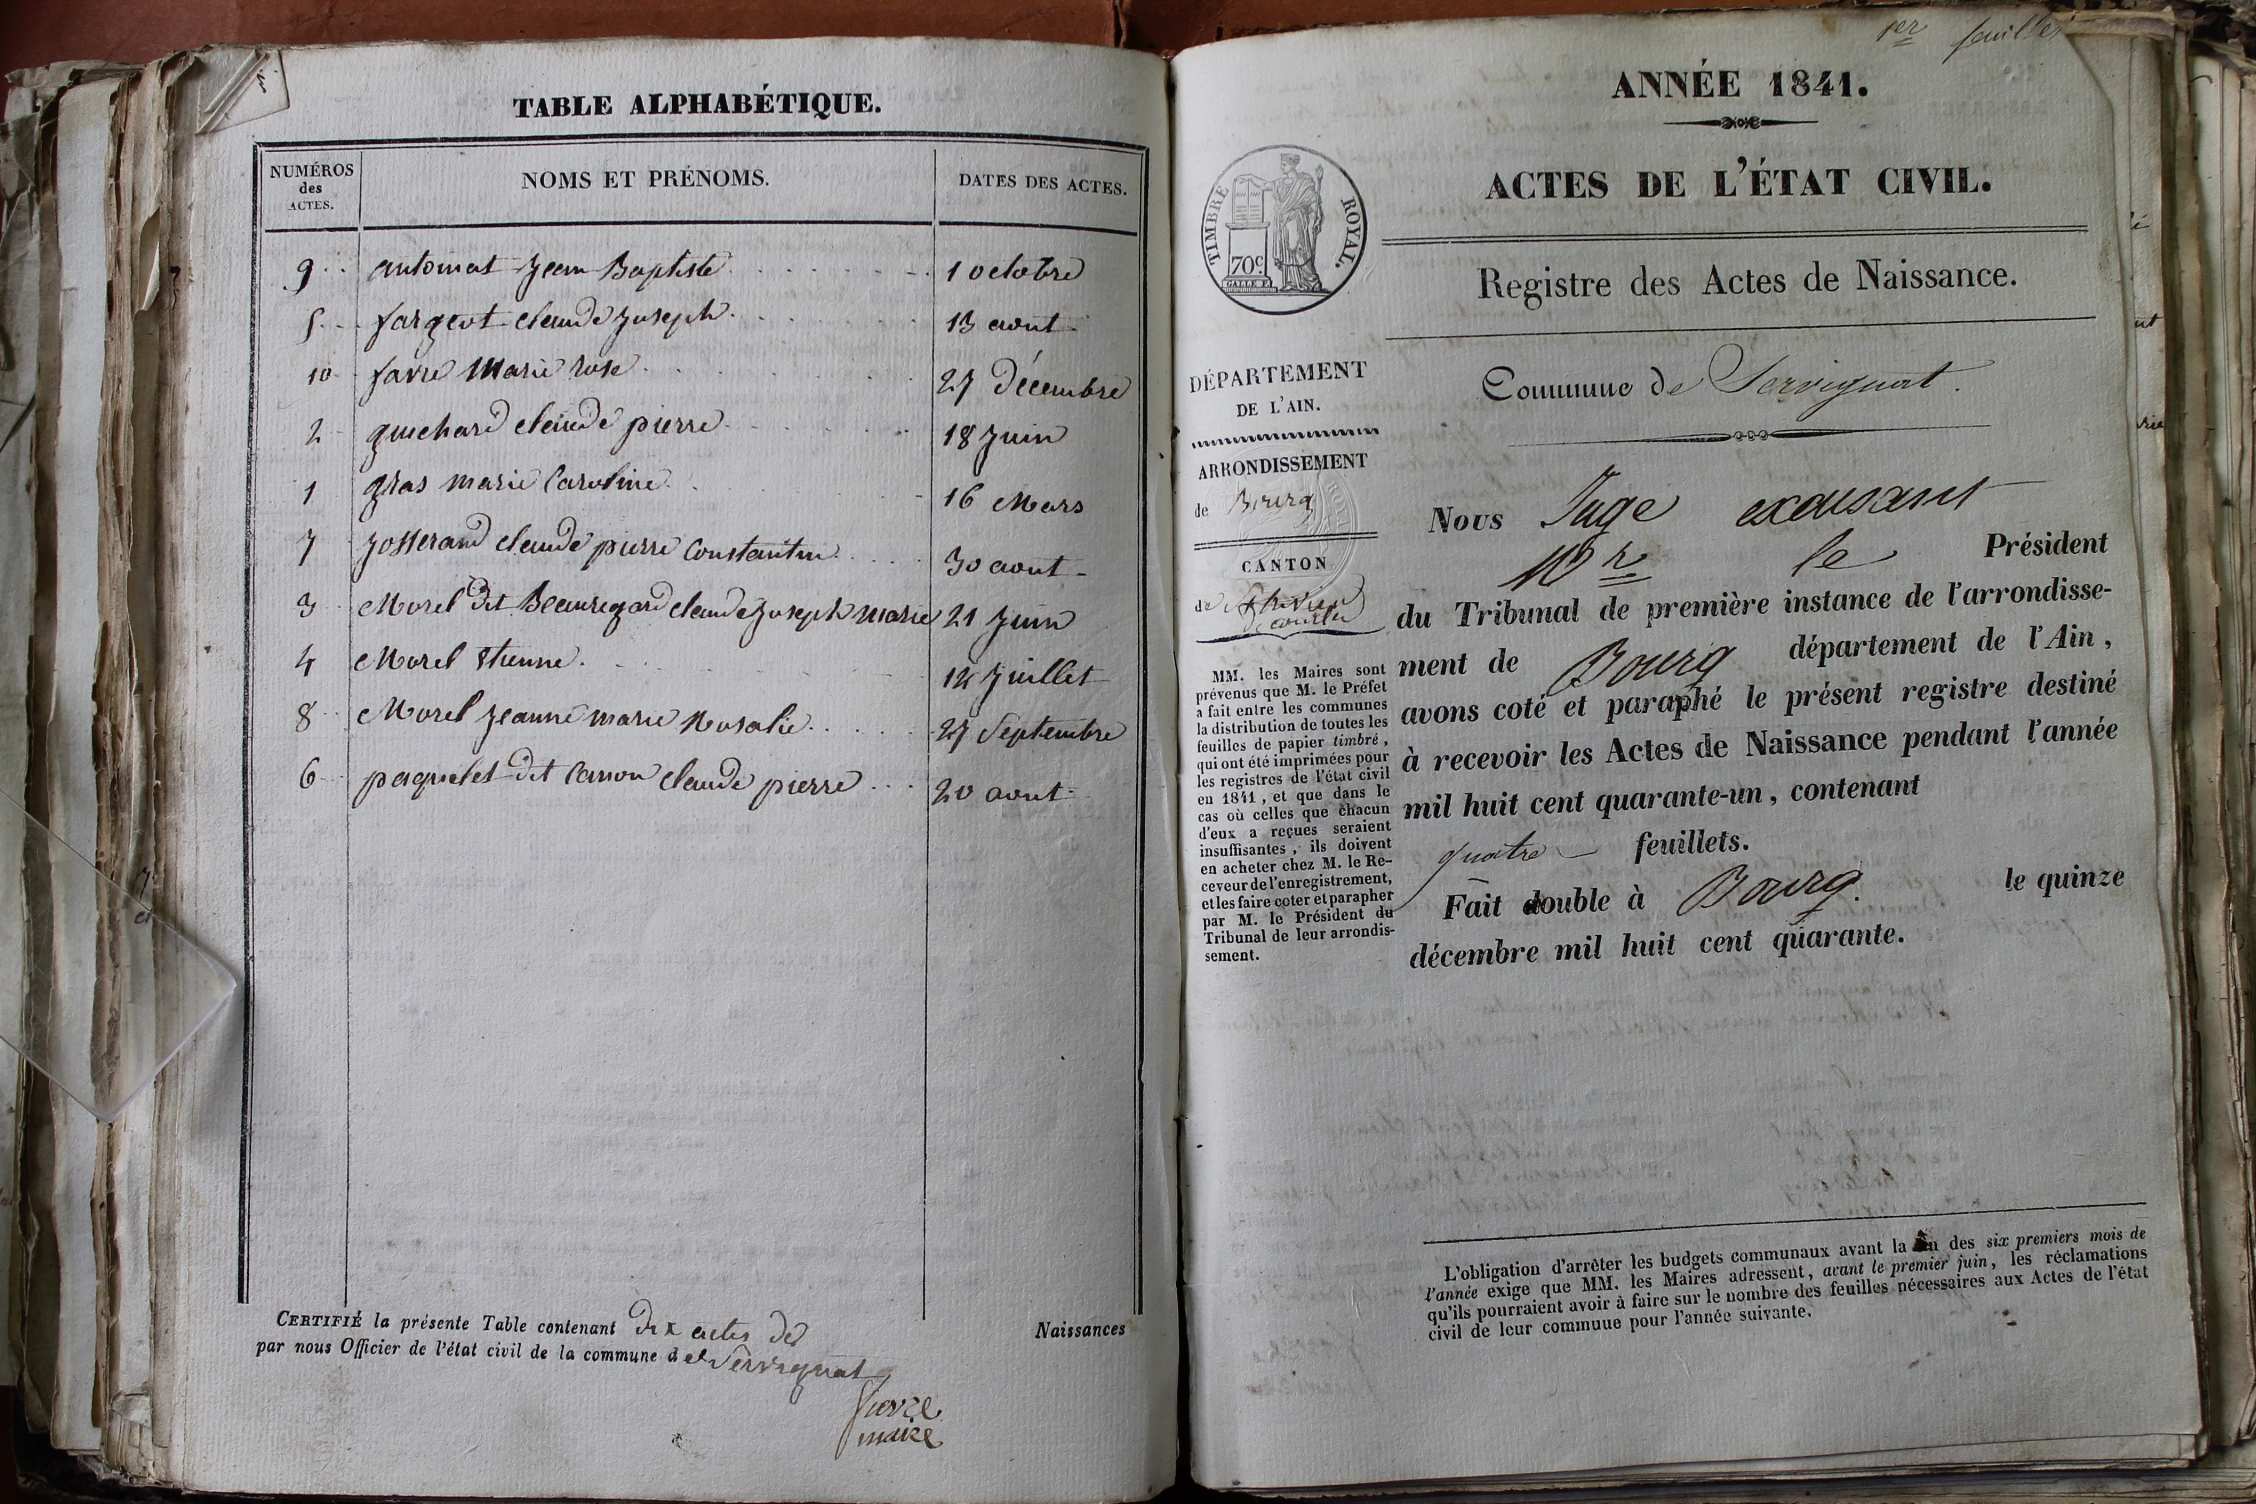 TABLE ALPHABÉTIQUE.
NUMÉROS des ACTES. NOMS ET PRÉNOMS. DATES DES ACTES.
9 antomat Jean Baptiste 1 octobre
5 fargeot claude Joseph 13 aout
10 favre Marie rose 27 Décembre
2 guichard claude pierre 18 Juin
1 gras marie Caroline 16 Mars
7 Josserand claude pierre Constantin 30 aout
3 Morel dit Beauregard claude Joseph marie 21 Juin
4 Morel Etienne 12 Juillet
8 Morel Jeanne marie Rosalie 27 Septembre
6 paquelet dit Carron claude pierre 20 aout
CERTIFIÉ la présente Table contenant dix actes de Naissances
par nous Officier de l'état civil de la commune de Servignat
favre
maire
1er feuillet
ANNÉE 1841.
ACTES DE L'ÉTAT CIVIL.
TIMBRE ROYAL.
70c.
Registre des Actes de Naissance.
DÉPARTEMENT
DE L'AIN.
Commune de Servignat.
ARRONDISSEMENT
de Bourg
CANTON
de St trivier
de courtes
MM. les Maires sont
prévenus que M. le Préfet
a fait entre les communes
la distribution de toutes les
feuilles de papier timbré,
qui ont été imprimées pour
les registres de l'état civil
en 1841, et que dans le
cas où celles que chacun
d'eux a reçues seraient
insuffisantes, ils doivent
en acheter chez M. le Re-
ceveur de l'enregistrement,
et les faire coter et parapher
par M. le Président du
Tribunal de leur arrondis-
sement.
Nous Juge excusant
Mr le Président
du Tribunal de première instance de l'arrondisse-
ment de Bourg département de l'Ain,
avons coté et paraphé le présent registre destiné
à recevoir les Actes de Naissance pendant l'année
mil huit cent quarante-un, contenant
quatre feuillets.
Fait double à Bourg. le quinze
décembre mil huit cent quarante.
L'obligation d'arrêter les budgets communaux avant la fin des six premiers mois de
l'année exige que MM. les Maires adressent, avant le premier juin, les réclamations
qu'ils pourraient avoir à faire sur le nombre des feuilles nécessaires aux Actes de l'état
civil de leur commune pour l'année suivante.